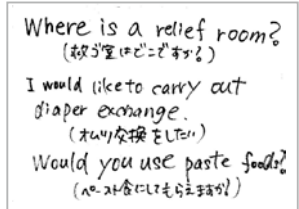 Where is a relief room?
(救う室はどこですか?)
I would like to carry out
diaper exchange.
(オムツ交換をしたい)
Would you use paste foods?
(ペースト食にしてもらえますか?)